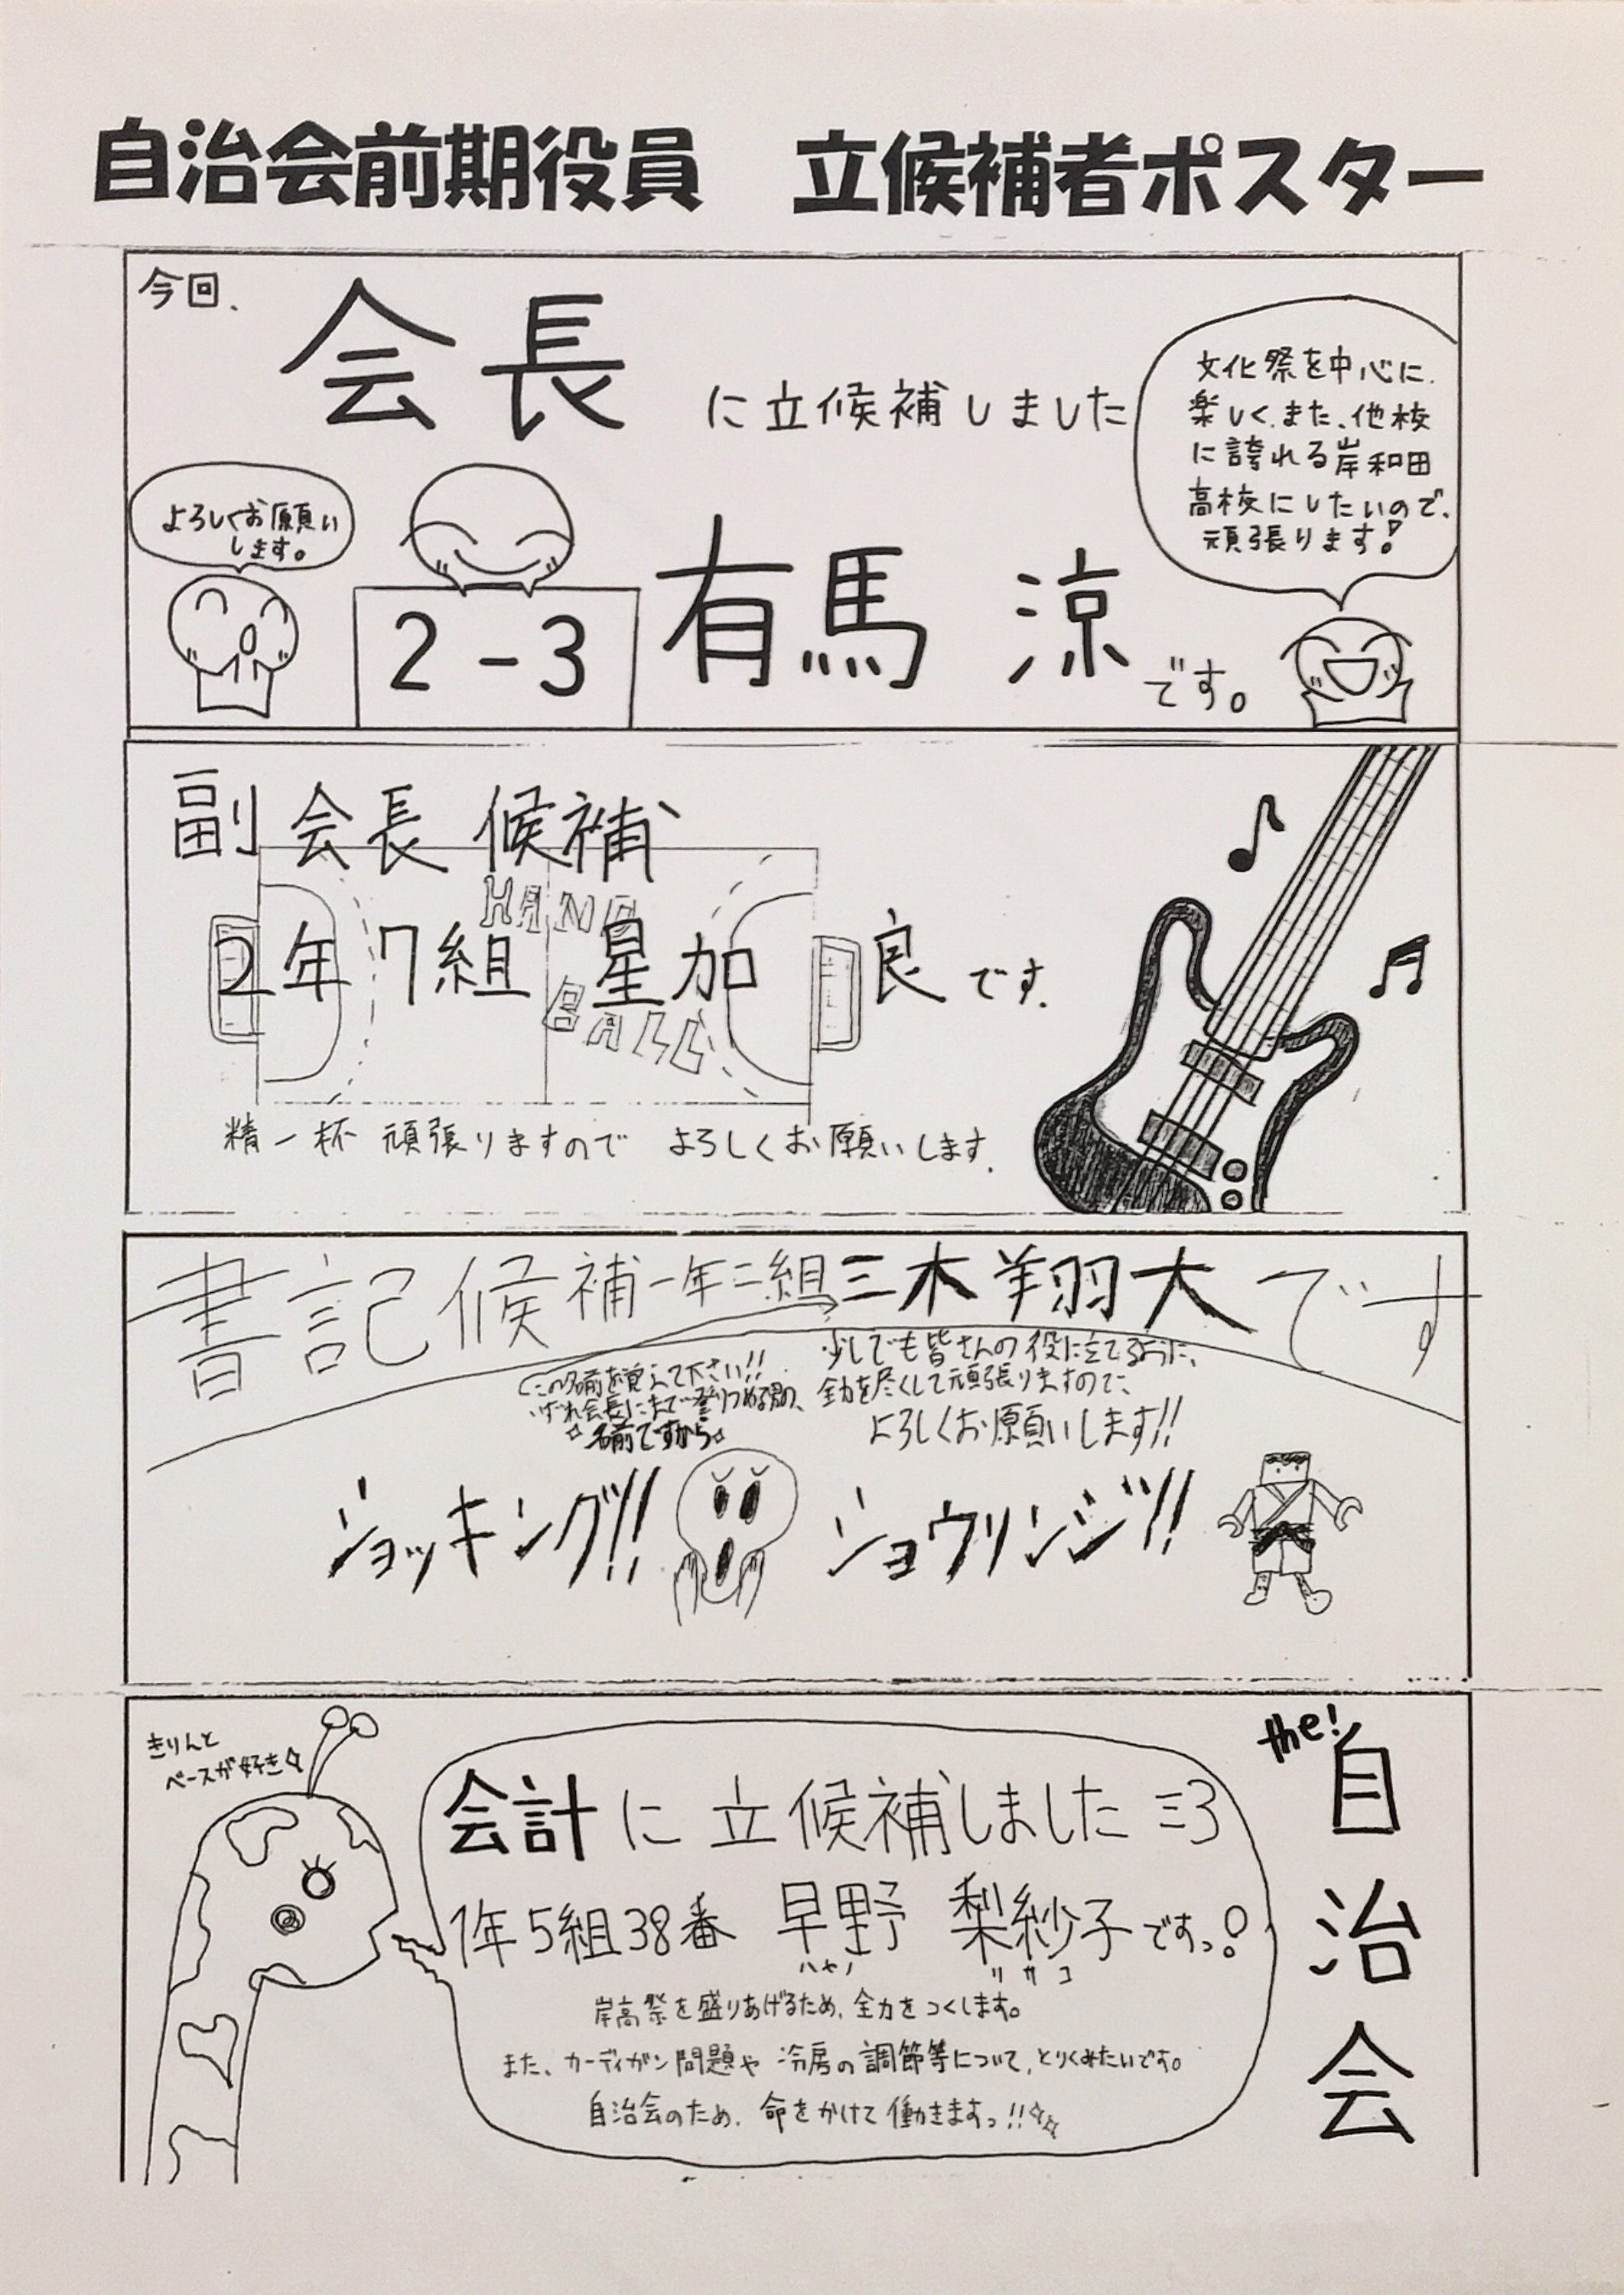 自治会前期役員　立候補者ポスター
今回、
会長に立候補しました
文化祭を中心に、
楽しく、また、他校
に誇れる岸和田
高校にしたいので、
頑張ります!
よろしくお願い
します。
2-3 有馬 涼です。
副会長候補
HAND
2年7組 星加 良です。
BALL
精一杯頑張りますので よろしくお願いします。
書記候補一年二組三木翔大です
この名前を覚えて下さい!!
いずれ会長にまで登りつめる男の、
名前ですから
少しでも皆さんの役に立てるように、
全力を尽くして頑張りますので、
よろしくお願いします!!
ショッキング!! ショウリンジ!!
the!
自治会
きりんと
ベースが好き
会計に立候補しました ミ3
1年5組38番 早野 梨紗子ですっ!
ハヤノ リサコ
岸高祭を盛りあげるため、全力をつくします。
また、カーディガン問題や冷房の調節等について、とりくみたいです。
自治会のため、命をかけて働きますっ!!